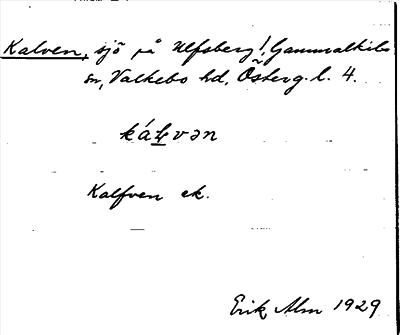 Kalven, sjö på Ulfsberg, Gammalkils
sn, Valkebo hd, Österg. l. 4.
kálvən
Kalfven ek.
Erik Alm 1929